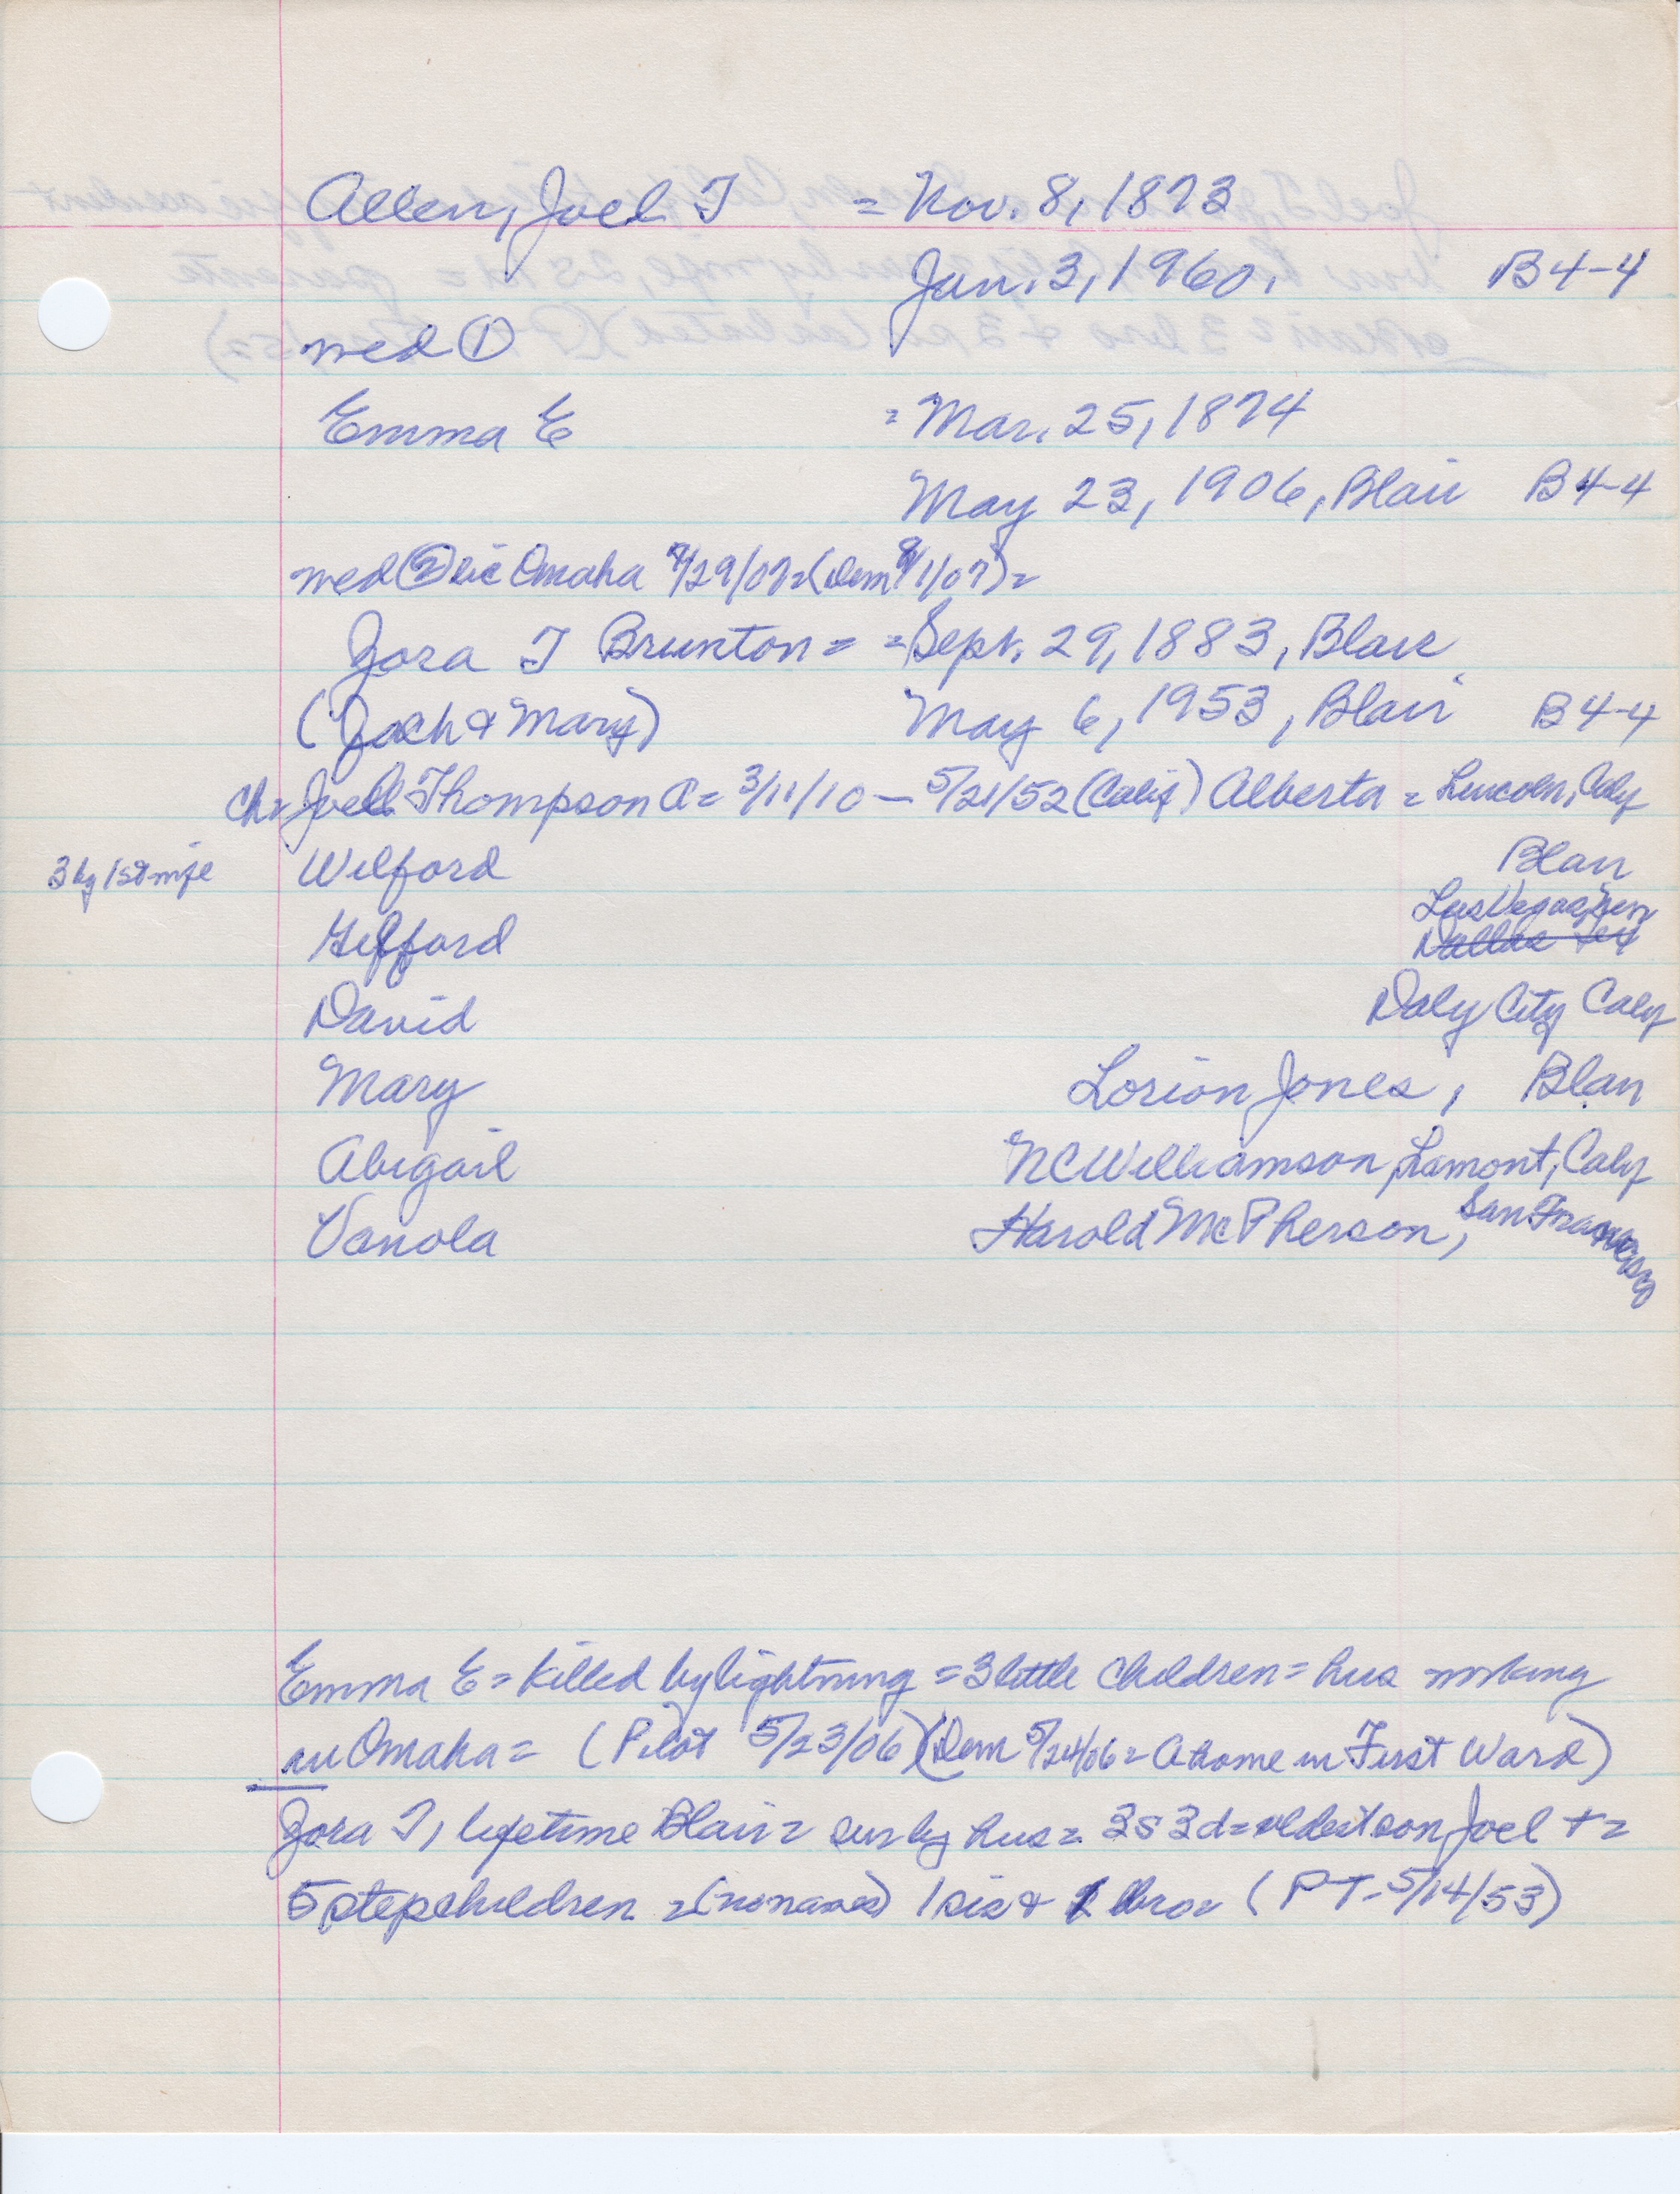 Allen, Joel T = Nov. 8, 1873
Jan. 3, 1960. B4-4
med ①
Emma E = Mar. 25, 1874
May 23, 1906, Blair B4-4
med ② lic Omaha 7/29/07 = (Dem 8/1/07) =
Zora T Brunton = = Sept. 29, 1883, Blair
(Zach & Mary) May 6, 1953, Blair B4-4
ch = Joel Thompson A = 3/11/10 – 5/21/52 (Calif) Alberta = Lincoln, Calif
3 by 1st wife Wilford Blair
Las Vegas, Nev
Gifford Dallas Tex
David Daly City Calif
Mary Lorion Jones, Blair
Abigail NC Williamson, Lamont, Calif
Vanola Harold McPherson, San Francisco
Emma E = killed by lightning = 3 little children = hus working
in Omaha = (Pilot 5/23/06) (Dem 5/24/06 = At home in First Ward)
Zora T, lifetime Blair = sur by hus = 3s 3d = oldest son Joel + =
5 stepchildren = (no names) 1 sis & 1 bro = (PT - 5/14/53)